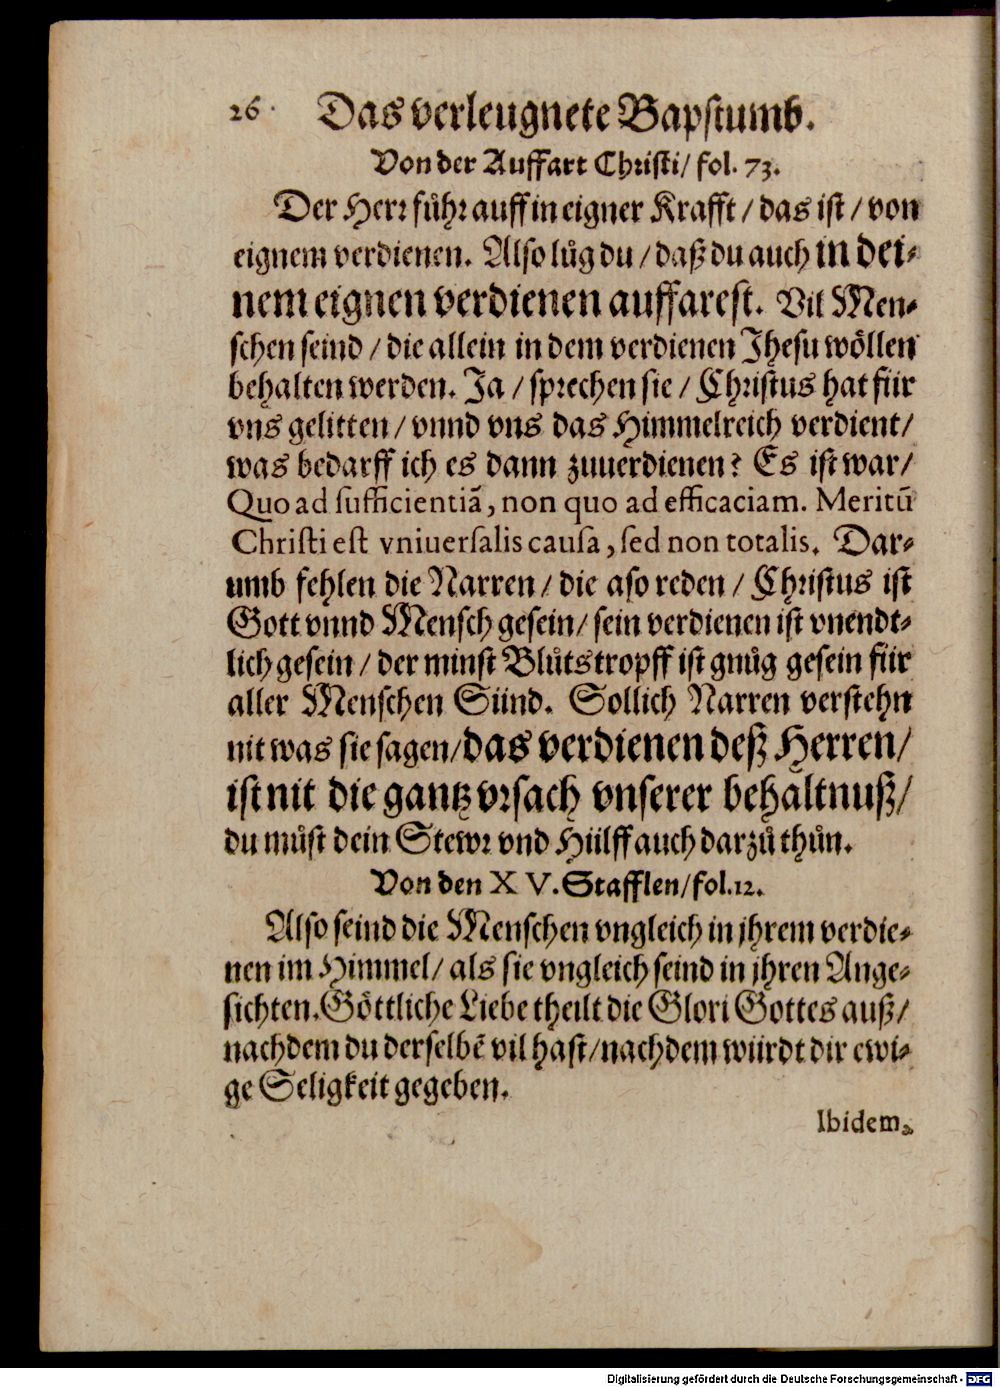 26. Das verleugnete Bapstumb.
Von der Auffart Christi/ fol. 73.
Der Herr fůhr auff in eigner Krafft / das ist / von
eignem verdienen. Also lůg du / daß du auch in dei-
nem eignen verdienen auffarest. Vil Men-
schen seind / die allein in dem verdienen Jhesu wöllen
behalten werden. Ja / sprechen sie / Christus hat für
vns gelitten / vnnd vns das Himmelreich verdient/
was bedarff ich es dann zuuerdienen? Es ist war/
Quo ad sufficientiã, non quo ad efficaciam. Meritũ
Christi est vniuersalis causa, sed non totalis. Dar-
umb fehlen die Narren / die aso reden / Christus ist
Gott vnnd Mensch gesein/ sein verdienen ist vnendt-
lich gesein / der minst Blůtstropff ist gnůg gesein für
aller Menschen Sünd. Sollich Narren verstehn
nit was sie sagen/das verdienen deß Herren/
ist nit die gantz vrsach vnserer behaltnuß/
du můst dein Stewr vnd Hülff auch darzů thůn.
Von den XV. Stafflen/fol.12.
Also seind die Menschen vngleich in jhrem verdie-
nen im Himmel/ als sie vngleich seind in jhren Ange-
sichten. Göttliche Liebe theilt die Glori Gottes auß/
nachdem du derselbẽ vil hast/nachdem würdt dir ewi-
ge Seligkeit gegeben.
Ibidem.
Digitalisierung gefördert durch die Deutsche Forschungsgemeinschaft - DFG